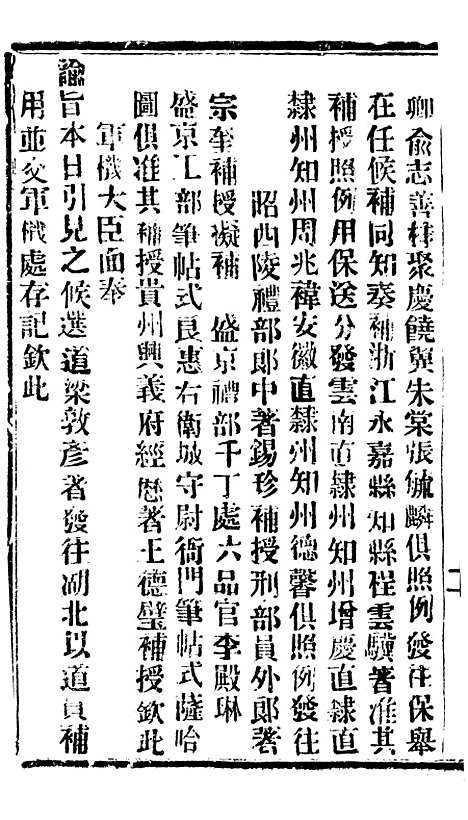 卿俞志善桂聚慶饒巽朱棠張毓麟俱照例發往保舉
在任候補同知奏補浙江永嘉縣知縣程雲驥著准其
補授照例用保送分發雲南直隸州知州增慶直隸直
隸州知州周兆禕安徽直隸州知州德馨俱照例發往
昭西陵禮部郎中著錫珍補授刑部員外郎著
宗奎補授擬補 盛京禮部千丁處六品官李殿琳
盛京工部筆帖式良惠右衛城守尉衙門筆帖式薩哈
圖俱准其補授貴州興義府經歷著王德璧補授欽此
軍機大臣面奉
諭旨本日引見之候選道梁敦彥著發往湖北以道員補
用並交軍機處存記欽此